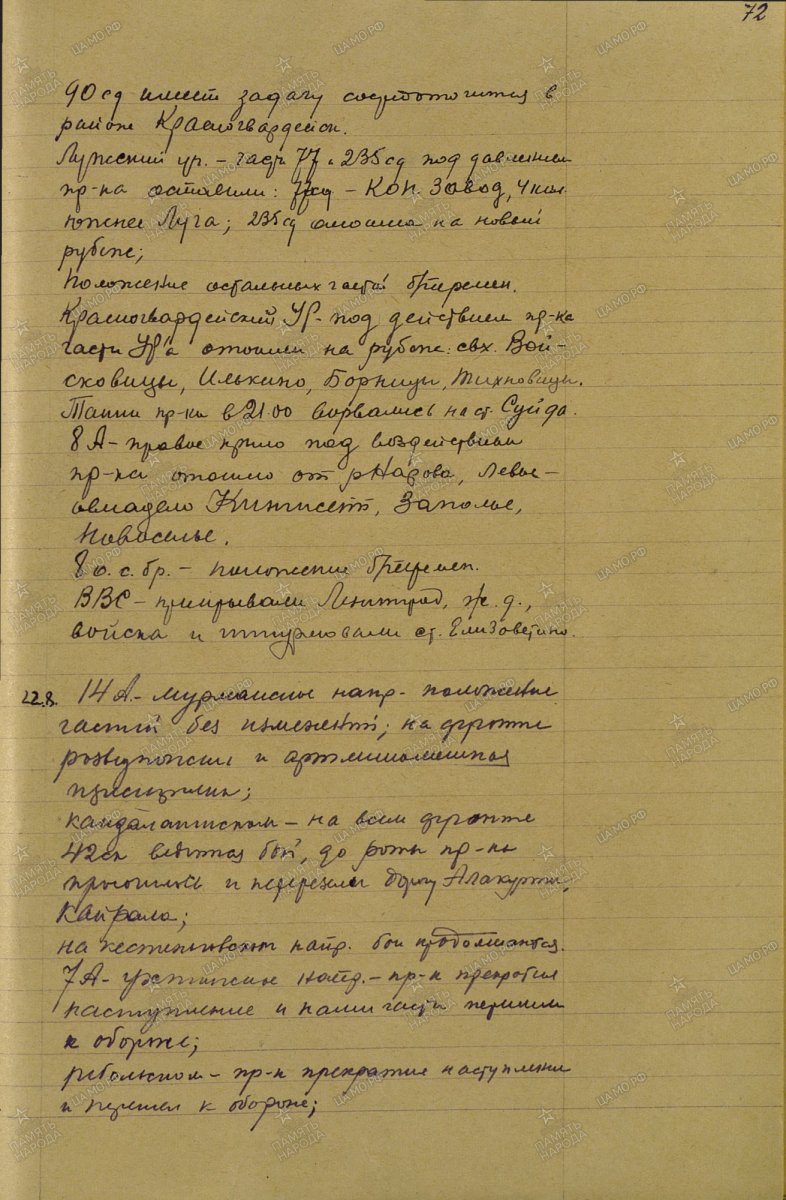 72
90 сд имеет задачу сосредоточится в
районе Красногвардейск.
Лужский ур. – части 77 и 235 сд под давлением
пр-ка оставили: – Кон. Завод, 4 км
южнее Луга; 235 сд отошла на новый
рубеж;
Положение остальных частей
Красногвардейский УР – под действием пр-ка
части УР'а отошли на рубеж: свх. Вой-
сковицы, Илькино, Борницы, Тихковицы.
Танки пр-ка в 21.00 ворвались на ст. Суйда.
8 А – правое крыло под воздействием
пр-ка отошло от р Нарова, левое –
овладело Кингисепп, Заполье,
Новоселье.
8 о. с. бр. – положение
ВВС – прикрывали Ленинград, ж. д.,
войска и штурмовали ст. Елизаветино.
22.8. 14 А. – мурманское напр – положение
частей без изменений; на фронте
разведпоиски и артминометная
перестрелка;
кандалакшском – на всем фронте
42 ск ведутся бой, до роты пр-ка
просочилось и перерезали дорогу Алакуртти,
Кайрала;
на кестеньгском напр. бои продолжаются.
7 А – ухтинское напр. – пр-к прекратил
наступление и наши части перешли
к обороне;
ребольском – пр-к прекратил наступление
и перешел к обороне;